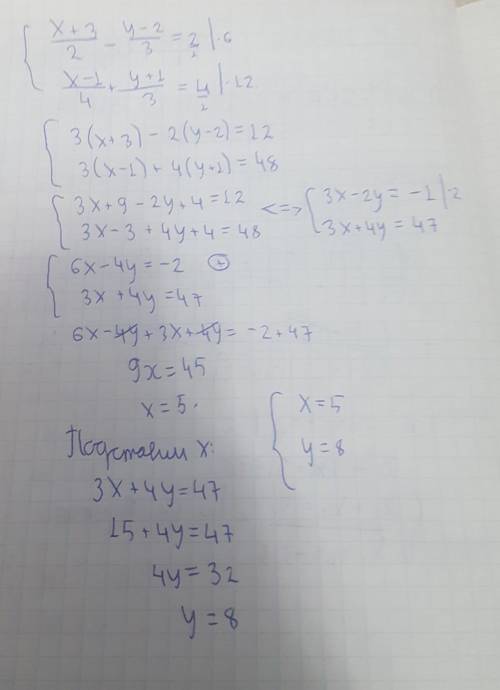 { (x+3)/2 - (y-2)/3 = 2 |·6
(x-1)/4 + (y+1)/3 = 4 |·12
{ 3(x+3) - 2(y-2) = 12
3(x-1) + 4(y+1) = 48
{ 3x+9-2y+4=12 <=> { 3x-2y = -1 |·2
3x-3+4y+4=48 3x+4y = 47
{ 6x-4y=-2 ⊕
3x+4y=47
6x-4y+3x+4y=-2+47
9x=45
x=5.
Подставим x:
3x+4y=47
15+4y=47
4y=32
y=8
{ x=5
y=8